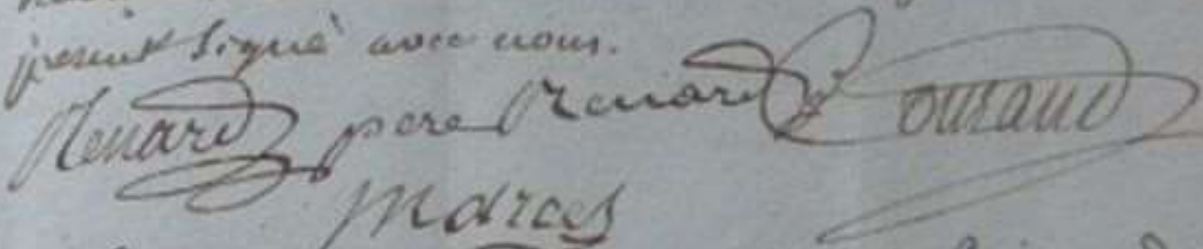 présent signé avec nous.
Renard père Renard Couraud
Marcas